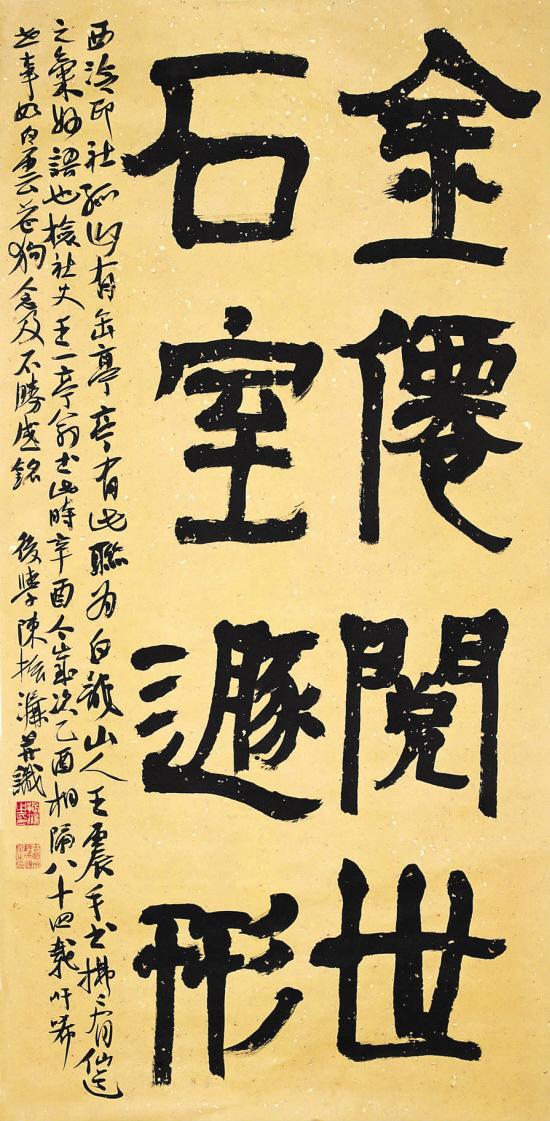 金僊閱世
石室遯形
西泠印社孤山有缶亭亭有此聯為白龍山人王震手書拂〻有仙逸
之氣妙語也檢社史王一亭翁書此時辛酉今歲次乙酉相隔八十四載吁唏
世事如白雲蒼狗念及不勝感銘 後學陳振濂并識